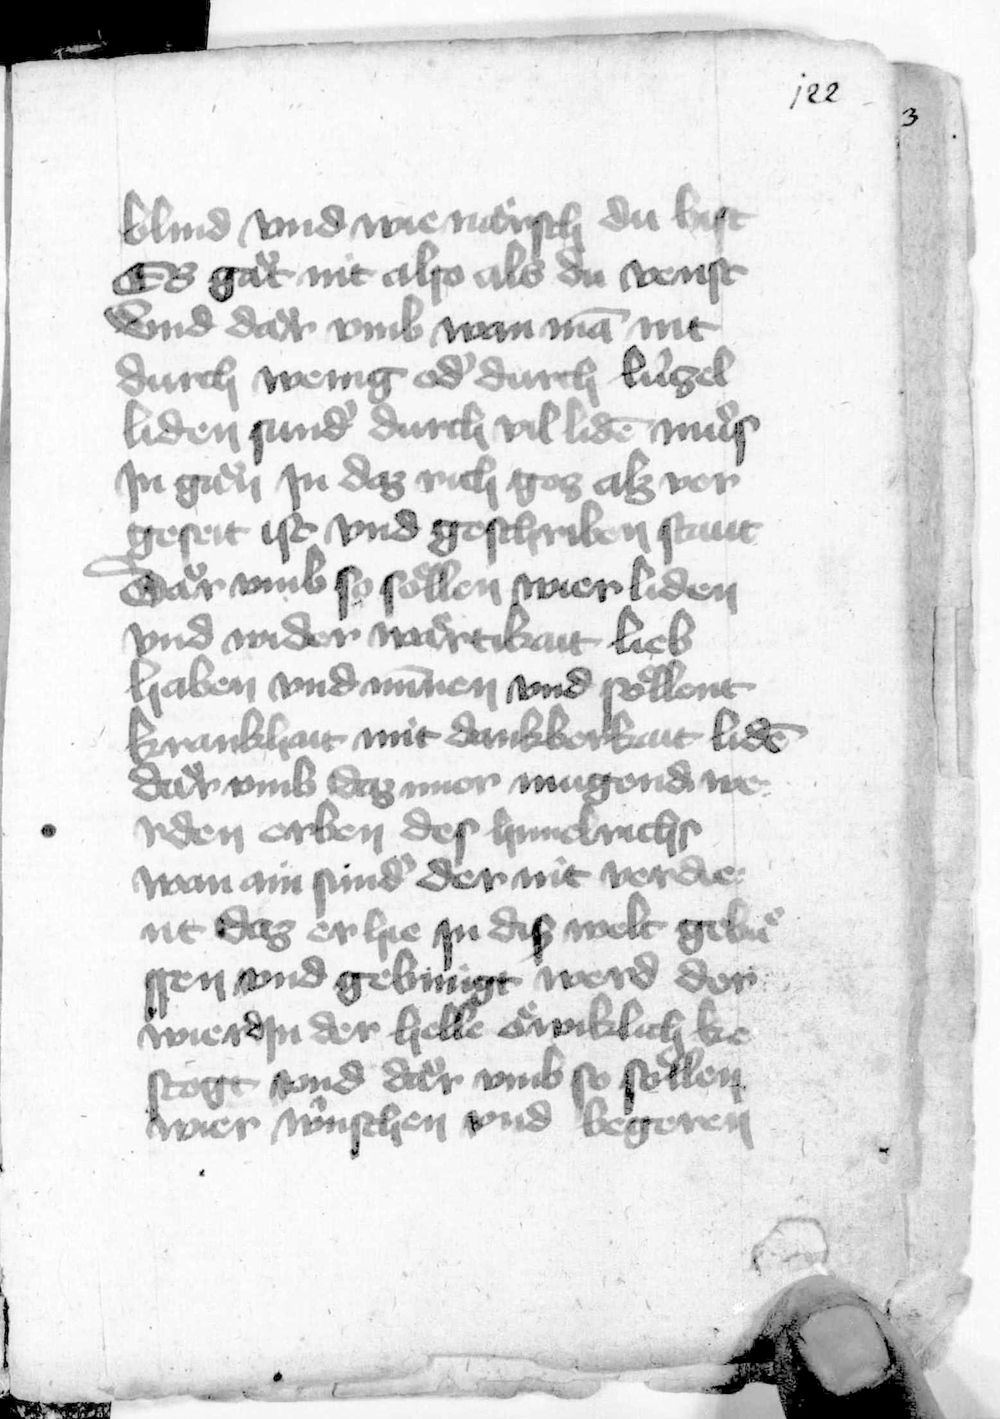 122
3
blind vnd wie närsch du bist
Es gåt nit also als du venst
Vnd dår vmb wan mā nit
durch wenig od' durch lützel
liden sund' durch vil lidē můs
In gån In daz rich goz alz vor
geseit ist vnd geschriben staut
Dår vmb so söllen wier liden
vnd wider wärtikait lieb
haben vnd minnen vnd söllent
krankhait mit dankberkait lidē
dår vmb daz mier mugend we
rden erben des himelrichs
wan ain sünd' der nit verdie
nt daz er hie in dis welt gebüe
ssen vnd gebinigt werd der
wierd In der helle ewiklich ke
stogt vnd dår vmb so söllen
wier wüschen vnd begeren